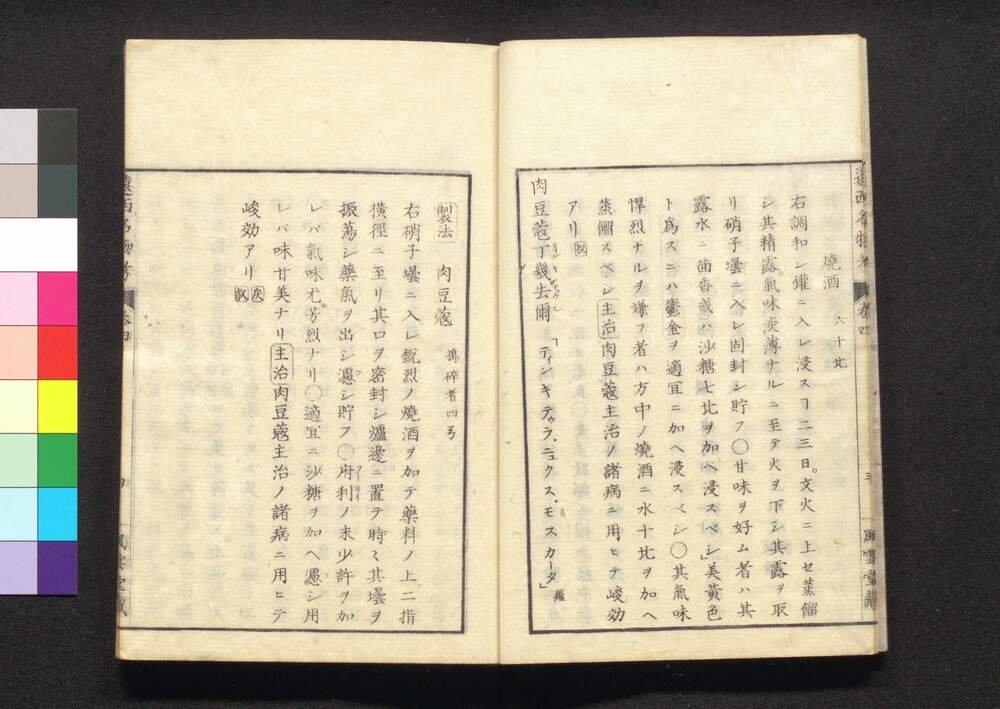 遠西名物考 巻四
燒酒 六十匕
右調和シ鑵ニ入レ浸スヿ二三日。文火ニ上セ蒸餾
シ其精露。氣味淡薄ナルニ至テ火ヲ下シ其露ヲ取
リ硝子壜ニ入レ固封シ貯フ〇甘味ヲ好ム者ハ其
露水ニ茴香或ハ沙糖七比ヲ加ヘ浸スベシ」美黃色
ト爲スニハ鬱金ヲ適宜ニ加ヘ浸スベシ〇其氣味
悍烈ナルヲ嫌フ者ハ方中ノ燒酒ニ水十比ヲ加ヘ
蒸餾スベシ 主治 肉豆蔲主治ノ諸病ニ用ヒテ峻効
アリ
肉豆蔲丁幾去爾 「ティンキテゥラ、ニュクス、モスカータ」羅
製法 肉豆蔲 搗碎者四ヲ
右硝子壜ニ入レ鋭烈ノ燒酒ヲ加テ藥料ノ上、二指
橫徑ニ至リ其口ヲ密封シ爐邊ニ置テ時々其壜ヲ
振蕩シ藥氣ヲ出シシ濾シ貯フ〇府利ノ末少許ヲ加
レバ氣味尤芳烈ナリ〇適宜ニ沙糖ヲ加ヘ濾シ用
レバ味甘美ナリ 主治 肉豆蔲主治ノ諸病ニ用ヒテ
峻効アリ
遠西名物考 巻四